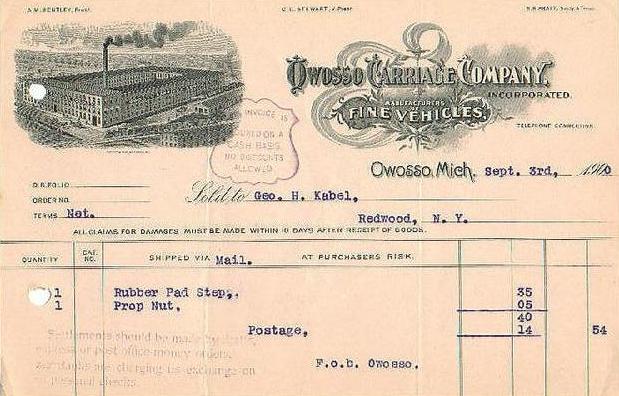 A. M. BENTLEY, Prest. C. E. STEWART, V. Prest.
OWOSSO CARRIAGE COMPANY,
INCORPORATED.
MANUFACTURERS
FINE VEHICLES.
TELEPHONE CONNECTION.
INVOICE IS
ON A
CASH BASIS
NO DISCOUNTS
ALLOWED
Owosso, Mich. Sept. 3rd, 1900
O.R. FOLIO
ORDER NO.
TERMS Net.
Sold to Geo. H. Kabel,
Redwood, N. Y.
ALL CLAIMS FOR DAMAGES MUST BE MADE WITHIN 10 DAYS AFTER RECEIPT OF GOODS.
QUANTITY CAT. NO. SHIPPED VIA Mail. AT PURCHASERS RISK.
1 Rubber Pad Step, 35
1 Prop Nut, 05
40
Postage, 14 54
F.o.b. Owosso.
Settlements should be made by draft,
express or post office money orders.
banks are charging us exchange on
personal checks.